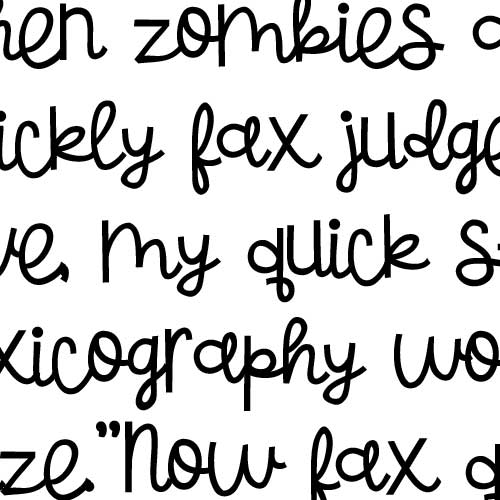 hen zombies
ickly fax judge
ve, my quick s
xicography wo
ze." Now fax q